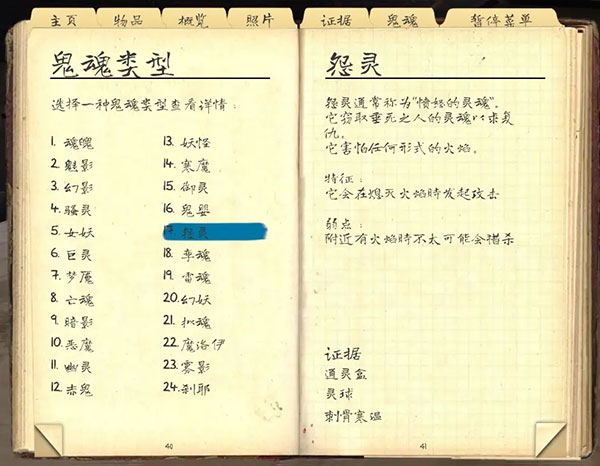 主页 物品 概览 照片 证据 鬼魂 暂停菜单
鬼魂类型
选择一种鬼魂类型查看详情:
1. 魂魄
2. 魅影
3. 幻影
4. 骚灵
5. 女妖
6. 巨灵
7. 梦魇
8. 亡魂
9. 暗影
10. 恶魔
11. 幽灵
12. 赤鬼
13. 妖怪
14. 寒魔
15. 御灵
16. 鬼婴
17. 怨灵
18. 孪魂
19. 雷魂
20. 幻妖
21. 拟魂
22. 魔洛伊
23. 雾影
24. 刹耶
40
怨灵
怨灵通常称为"愤怒的灵魂"。
它窃取垂死之人的灵魂以求复
仇。
它害怕任何形式的火焰。
特征:
它会在熄灭火焰時发起攻击
弱点:
附近有火焰時不太可能会猎杀
证据
通灵盒
灵球
刺骨寒温
41